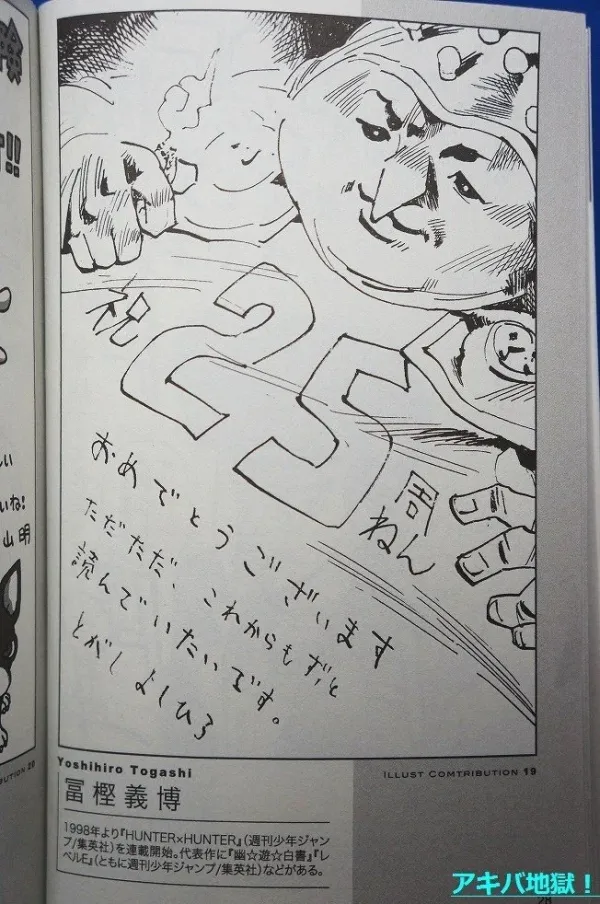 祝
25
周
ねん
おめでとうございます
ただただ、これからもずっと
読んでいたいです。
とがしよしひろ
Yoshihiro Togashi
ILLUST COMTRIBUTION 19
冨樫義博
1998年より『HUNTER×HUNTER』(週刊少年ジャン
プ/集英社)を連載開始。代表作に『幽☆遊☆白書』『レ
ベルE』(ともに週刊少年ジャンプ/集英社)などがある。
!!
しい
いね!
山明
BUTION 20
28
アキバ地獄!